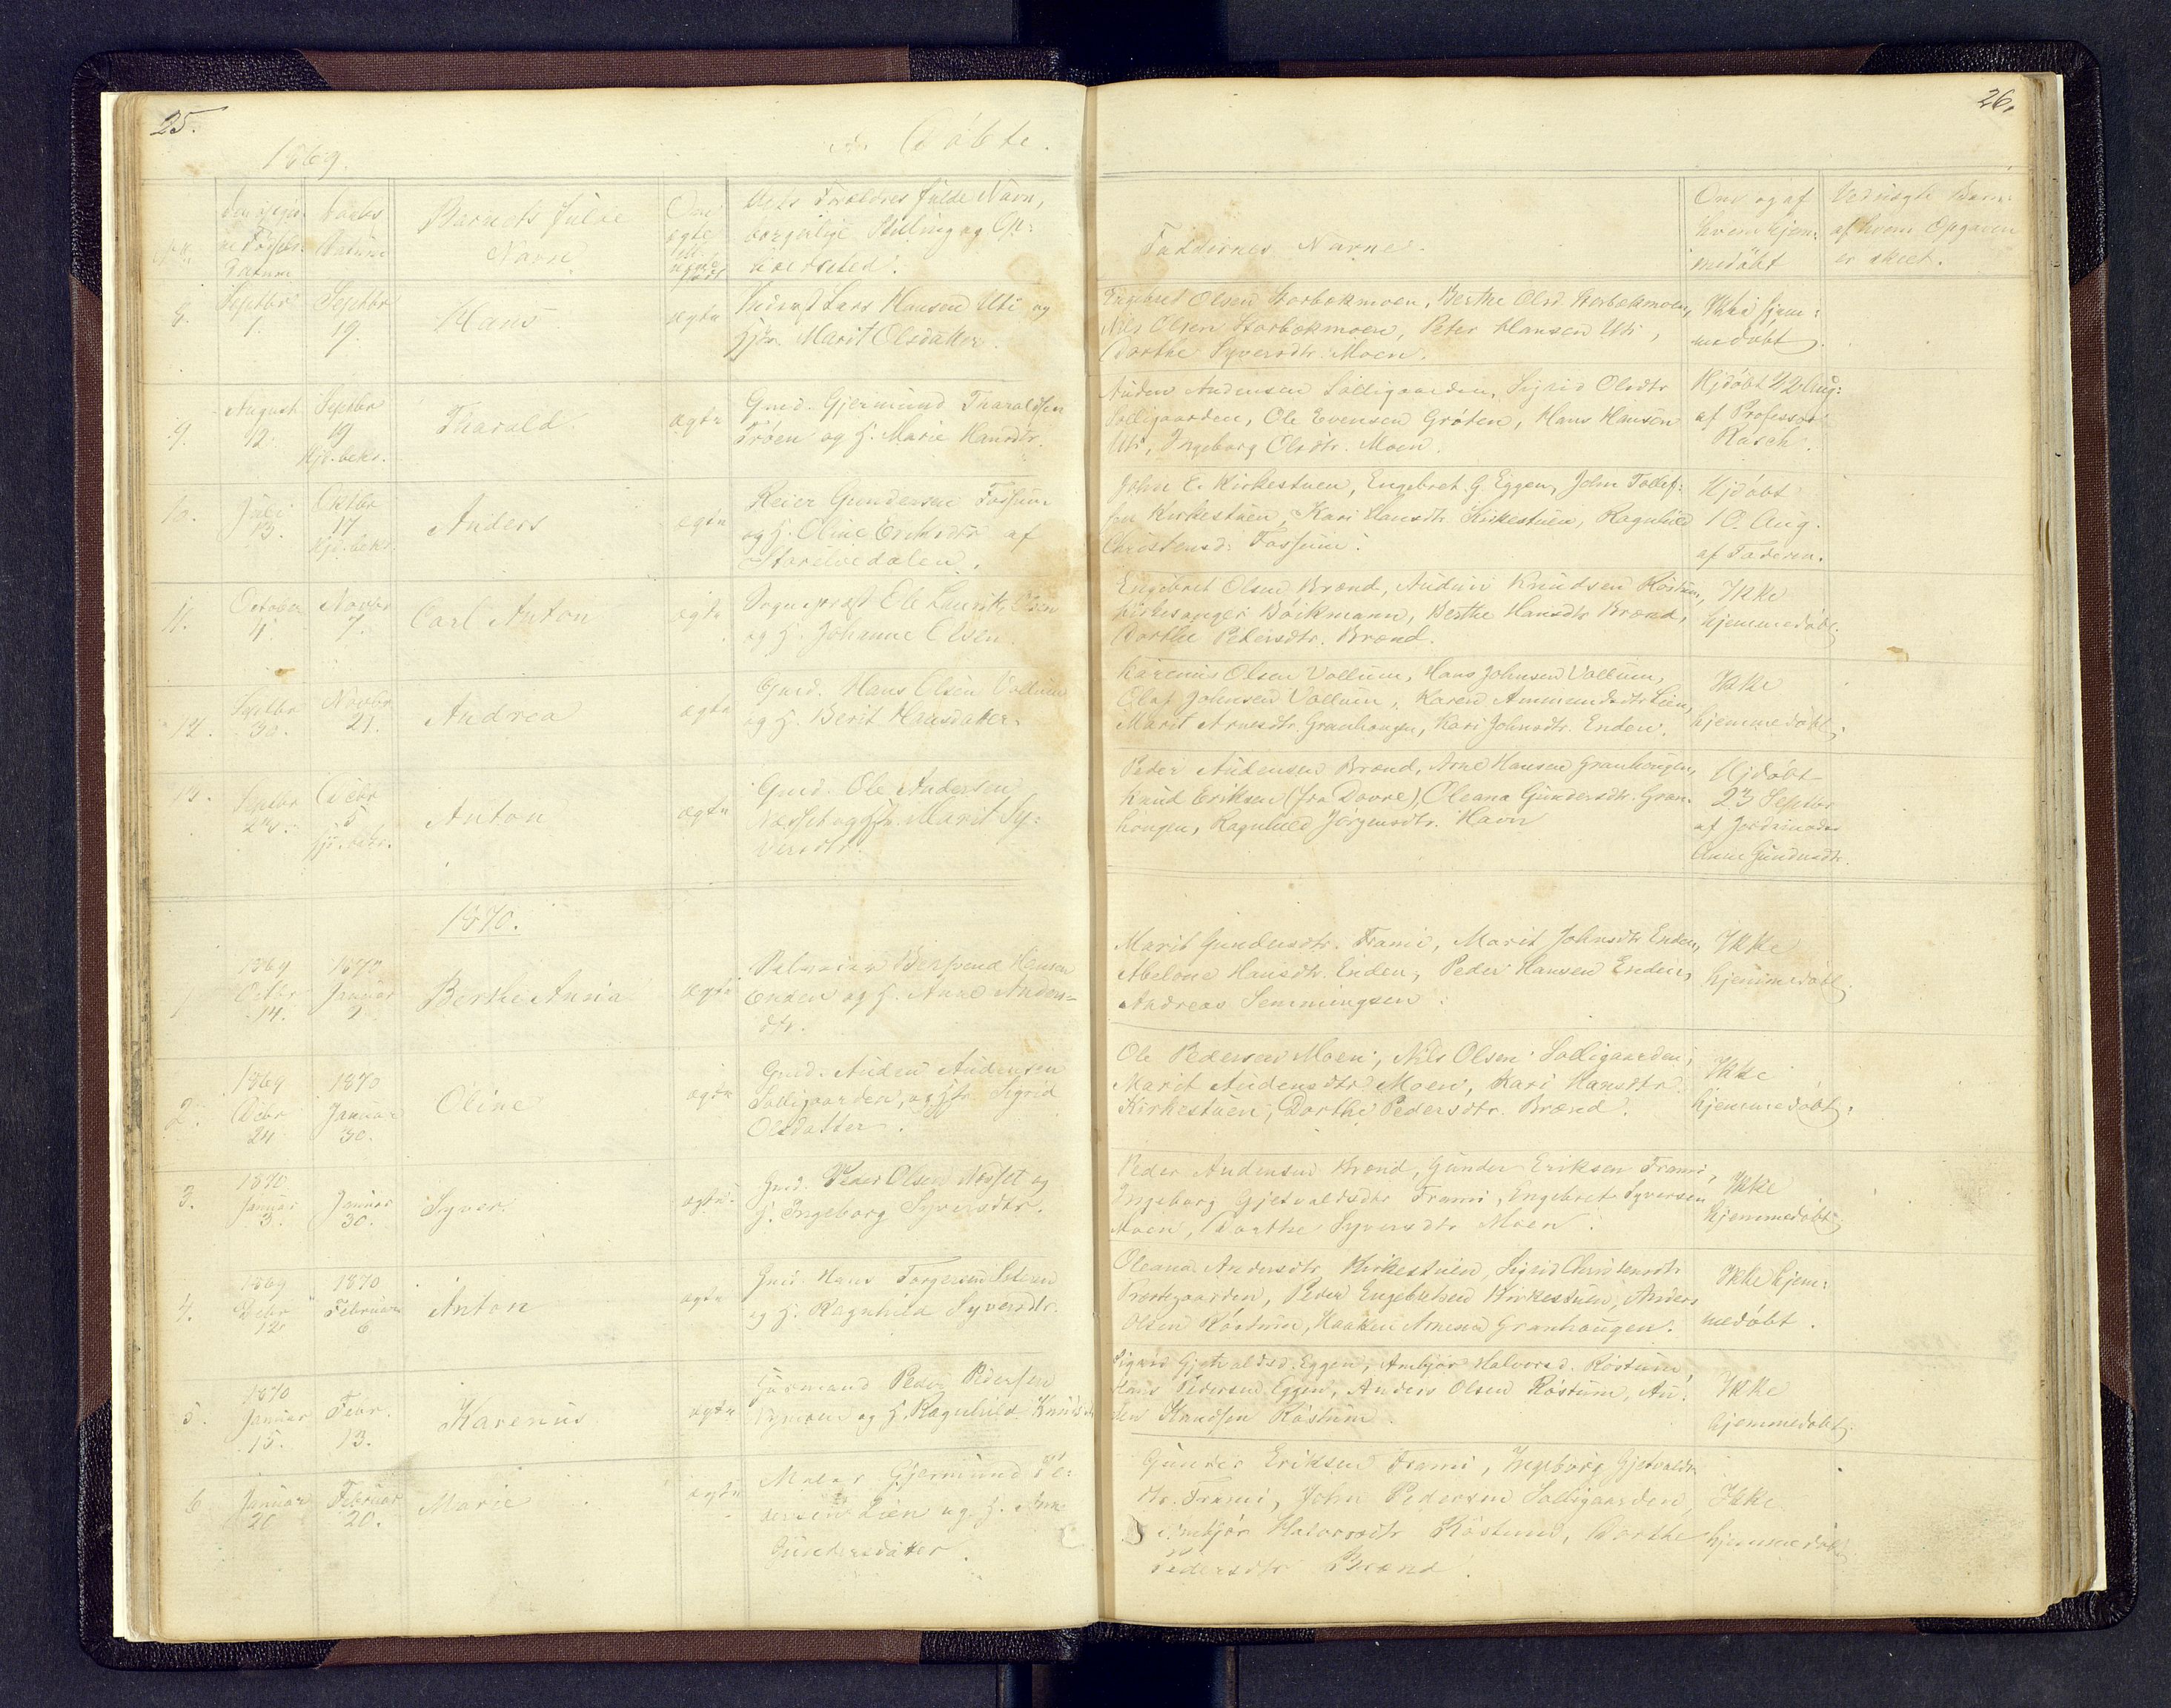 25.
1869.
Døbte.
Barnets fulde
Navn
Dets Forældres fulde Navn,
borgerlige Stilling og Op:
holdssted.
8.
Septbr
1.
Septbr
19.
Hans
ægte
Lars Hansen Uti og
Marit Olsdatter.
9.
August
12.
Septbr
19
Hjd. bekr.
Tharald
ægte
Gmd. Gjermund Tharaldsen
Trøen og H. Marie Hansdtr.
10.
Juli
13.
Oktbr
17
Hjd. bekr.
Anders
ægte
Reier Gundersen Fossum
og H. Oline Eriksdtr af
Storelvedalen.
11.
October
4.
Novbr
7.
Carl Anton
ægte
Sognepræst Ole Laurits Olsen
og H. Johanne Olsen
12.
Septbr
30.
Novbr
21.
Andrea
ægte
Gmd. Hans Olsen Vollum
og H. Berit Hansdatter.
13.
Septbr
23.
Debr
5
Anton
ægte
Gmd. Ole Andersen
Næsset og Marit Sy:
versdtr.
1870.
1
1869
Octbr
14.
1870
Januar
Berthe Anna
ægte
Hansen
Enden og H. Anne Anders=
dtr.
2.
1869
Debr
24
1870
Januar
30.
Oline
ægte
Gmd. Auden Audensen
Solligaarden, og Sigrid
Olsdatter.
3.
1870
Januar
3.
Januar
30.
Syver
ægte
Gmd. Peder Olsen Næsset og
H. Ingeborg Syversdtr.
4.
1869
Debr
12.
1870
Februar
6
Anton
ægte
Gmd. Hans Torgersen
og H. Ragnhild Syversdtr.
5.
1870
Januar
15.
Febr.
13.
Karenus
ægte
Peder Pedersen
og H. Ragnhild Knudsdtr
6.
Januar
20
Februar
20.
Marie
ægte
Gjermund Pe:
dersen Lien og H. Anne
Gundersdatter.
26.
Faddernes Navne.
Om og af
hvem hjem:
medøbt
af hvem Opgaven
er skeet.
Engebret Olsen Storbækmoen, Berthe Olsd. Storbækmoen,
Nils Olsen Storbækmoen, Peter Hansen Uti,
Dorthe Syversdtr. Moen.
Ikke hjem:
medøbt.
Auden Audensen Solligaarden, Sigrid Olsdtr
Solligaarden, Ole Evensen Grøten, Hans Hansen
Uti, Ingeborg Olsdtr. Moen.
Hjdøbt 12 Aug:
af Professor
Rasch.
John E. Kirkestuen, Engebret G. Eggen, John Tollef:
sen Kirkestuen, Kari Hansdtr. Kirkestuen, Ragnhild
Christensd. Fossum.
Hjdøbt
10. Aug.
af Faderen.
Engebret Olsen Brænd, Auden Knudsen Røstum,
Kirkesanger Bøickmann, Berthe Hansdtr Brænd,
Dorthe Pedersdtr. Brænd.
Ikke
hjemmedøbt.
Karenus Olsen Vollum, Hans Johnsen Vollum,
Olaf Johnsen Vollum, Karen Amundsdtr Lien,
Marit Arnesdtr. Granhougen, Kari Johnsdtr. Enden.
Ikke
hjemmedøbt.
Peder Audensen Brænd, Arne Hansen Granhougen,
Knud Eriksen (fra Dovre), Oleana Gundersdtr. Gran:
hougen, Ragnhild Jørgensdtr. Havn
Hjdøbt
23 Septbr
af Jordemoder
Anne Gundersdtr.
Marit Gundersdtr. Frami, Marit Johnsdtr Enden,
Abelone Hansdtr. Enden, Peder Hansen Enden,
Andreas Semmingsen.
Ikke
hjemmedøbt.
Ole Pedersen Moen, Nils Olsen Solligaarden,
Marit Audensdtr Moen, Kari Hansdtr
Kirkestuen, Dorthe Pedersdtr. Brænd.
Ikke
hjemmedøbt.
Peder Audensen Brænd, Gunder Eriksen Frami,
Ingeborg Gjetvaldsdtr Frami, Engebret Syversen
Moen, Dorthe Syversdtr Moen.
Ikke
hjemmedøbt
Oleana Andersdtr Kirkestuen, Sigrid Christensdtr
Præstgaarden, Peder Engebretsen Kirkestuen, Anders
Olsen Røstum, Haaken Arnesen Granhougen.
Ikke hjem:
medøbt.
Sigrid Gjetvaldsd. Eggen, Ambjør Halvorsd. Røstum,
Hans Pedersen Eggen, Anders Olsen Røstum, Au:
den Knudsen Røstum.
Ikke
hjemmedøbt.
Gunder Eriksen Frami, Ingeborg Gjetvalds
dtr. Frami, John Pedersen Solligaarden,
Ambjør Halvorsdtr Røstum, Dorthe
Pedersdtr Brænd.
Ikke
hjemmedøbt